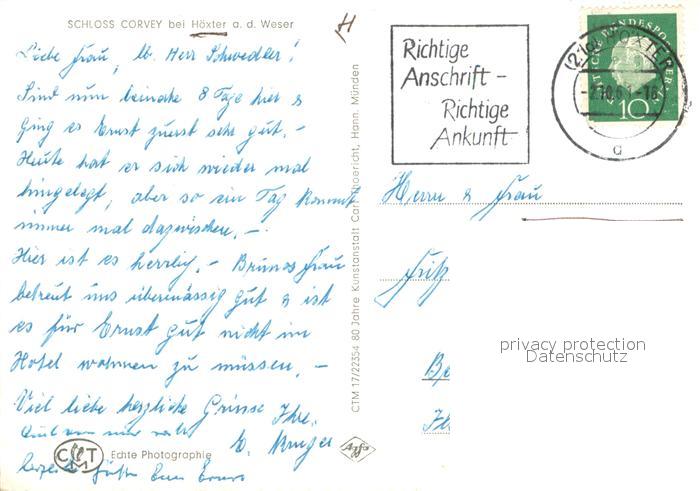 SCHLOSS CORVEY bei Höxter a. d. Weser
Liebe Frau, lb. Herr Schwedler!
Sind nun beinahe 8 Tage hier &
ging es Ernst zuerst sehr gut. -
Heute hat er sich wieder mal
hingelegt, aber so ein Tag kommt
immer mal dazwischen. -
Hier ist es herrlich. - Brunos Frau
betreut uns übermässig gut & ist
es für Ernst gut nicht im
Hotel wohnen zu müssen. -
Viel liebe herzliche Grüsse Ihre
Echte Photographie
Agfa
CTM 17/22354 80 Jahre Kunstanstalt Carl Thoericht, Hann. Münden
Richtige
Anschrift -
Richtige
Ankunft
DEUTSCHE BUNDESPOST
10
(21a) HÖXTER
a
Herrn & Frau
Fritz
privacy protection
Datenschutz
Be